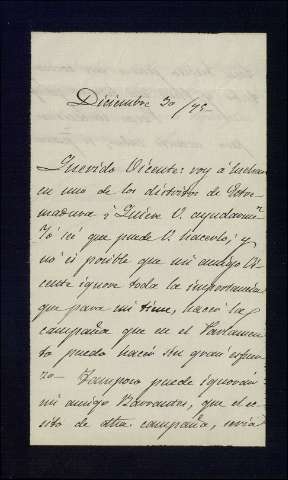 Diciembre 30/95.
Querido Vicente: voy á luchar
en uno de los distritos de Estre-
madura ¿Quiere V. ayudarme?
Yó sé que puede V. hacerlo; y
no es posible que mi amigo Vi-
cente ignore toda la importancia
que para mi tiene, hacer la
campaña que en el Parlamen-
to puedo hacer sin gran esfuer-
zo — Tampoco puede ignorar
mi amigo Barrantes, que el ec-
sito de dha. campaña, seria